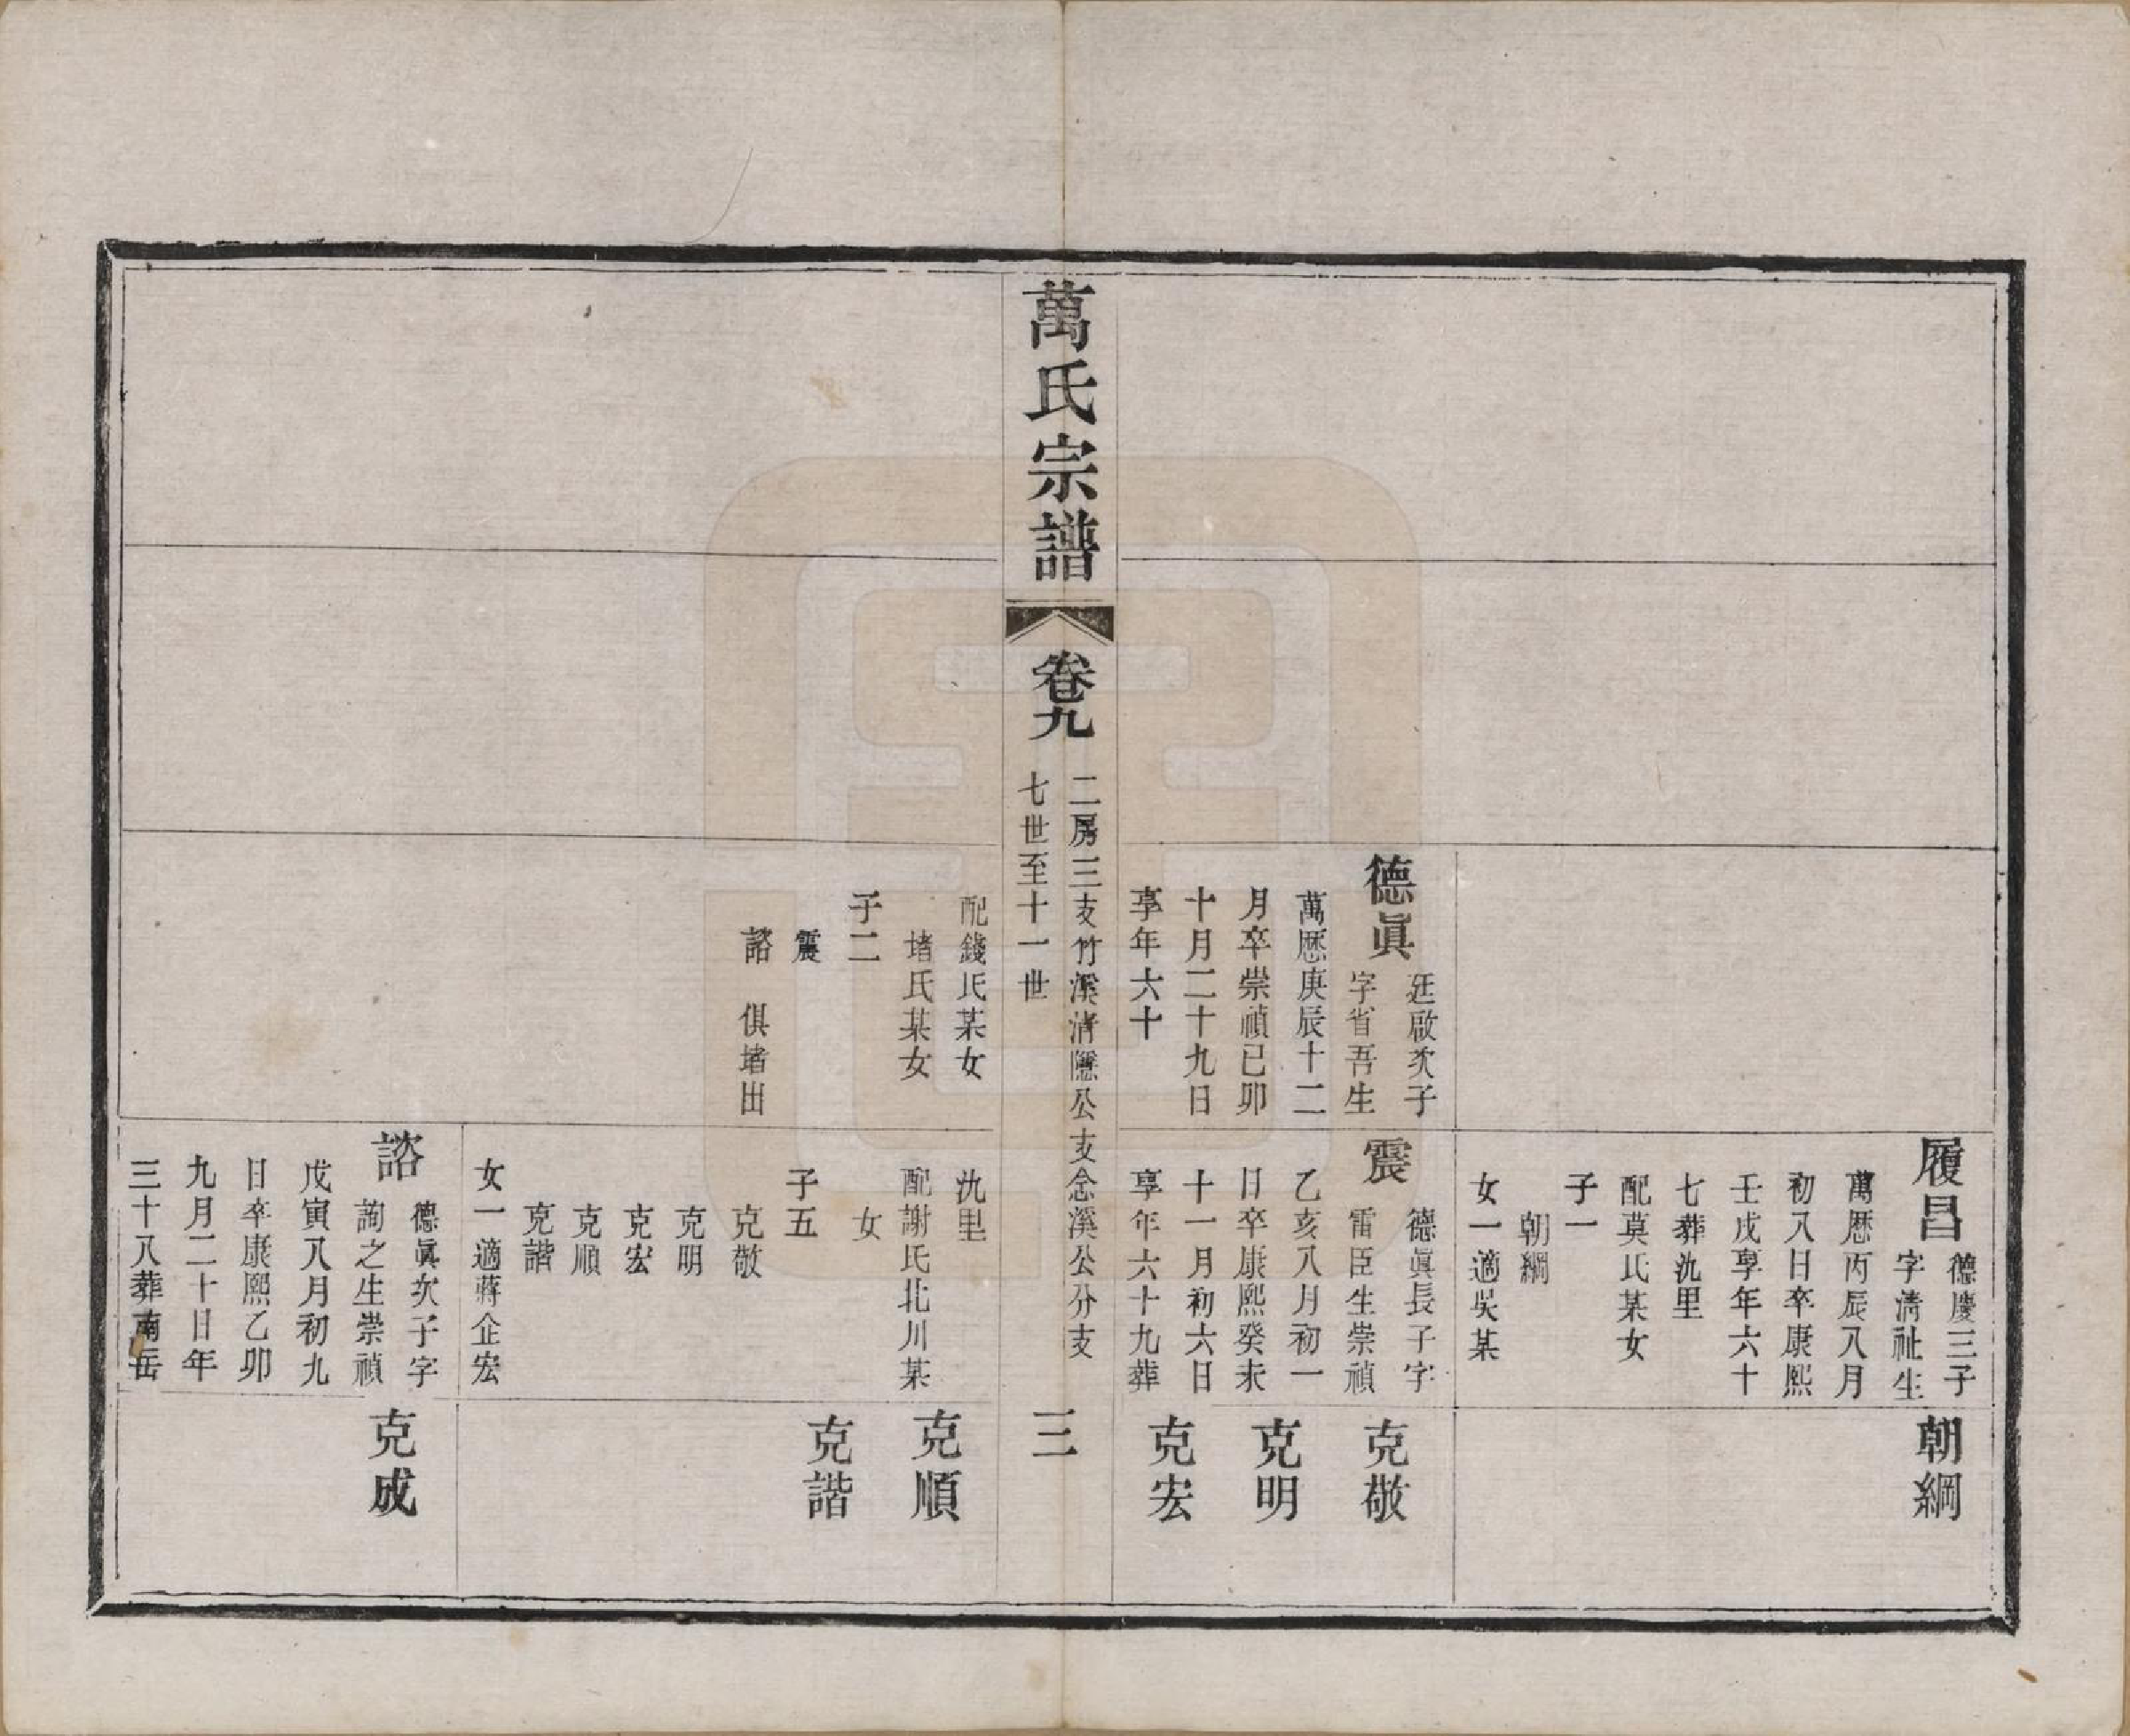 履昌
德慶三子
字淸祉生
萬厯丙辰八月
初八日卒康熙
壬戌享年六十
七葬氿里
配莫氏某女
子一
朝綱
女一適吳某
朝綱
德眞
廷啟次子
字省吾生
萬厯庚辰十二
月卒崇禎已卯
十月二十九日
享年六十
震
德眞長子字
雷臣生崇禎
乙亥八月初一
日卒康熙癸未
十一月初六日
享年六十九葬
克敬
克明
克宏
萬氏宗譜
卷九
二房三支竹溪淸隱公支念溪公分支
七世至十一世
三
配錢氏某女
堵氏某女
子二
震
諮 俱堵出
氿里
配謝氏北川某
女
子五
克敬
克明
克宏
克順
克諧
女一適蔣企宏
克順
克諧
諮
德眞次子字
詢之生崇禎
戊寅八月初九
日卒康熙乙卯
九月二十日年
三十八葬南岳
克成